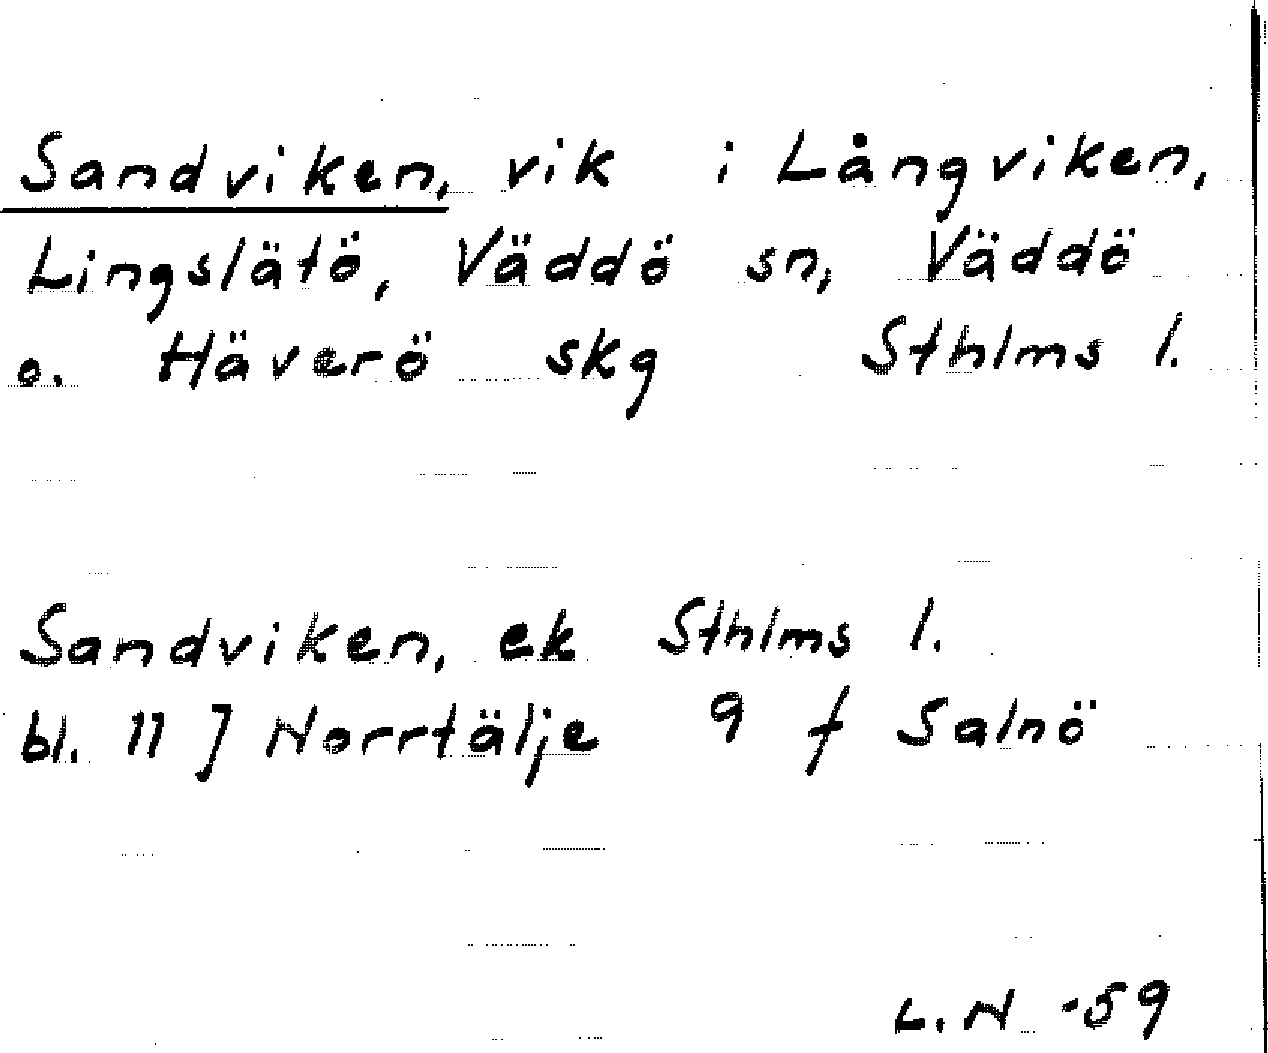 Sandviken, vik i Långviken,
Lingslätö, Väddö sn, Väddö
o. Häverö skg Sthlms l.
Sandviken, ek Sthlms l.
bl. 11 J Norrtälje 9 f Salnö
L.N -59